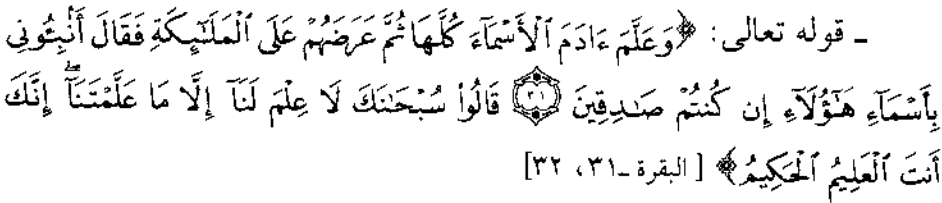 ـ قوله تعالى: ﴿وَعَلَّمَ ءَادَمَ ٱلْأَسْمَآءَ كُلَّهَا ثُمَّ عَرَضَهُمْ عَلَى ٱلْمَلَـٰٓئِكَةِ فَقَالَ أَنۢبِـُٔونِى
بِأَسْمَآءِ هَـٰٓؤُلَآءِ إِن كُنتُمْ صَـٰدِقِينَ ۝٣١ قَالُوا۟ سُبْحَـٰنَكَ لَا عِلْمَ لَنَآ إِلَّا مَا عَلَّمْتَنَآ ۖ إِنَّكَ
أَنتَ ٱلْعَلِيمُ ٱلْحَكِيمُ﴾ [البقرة ـ٣١، ٣٢]